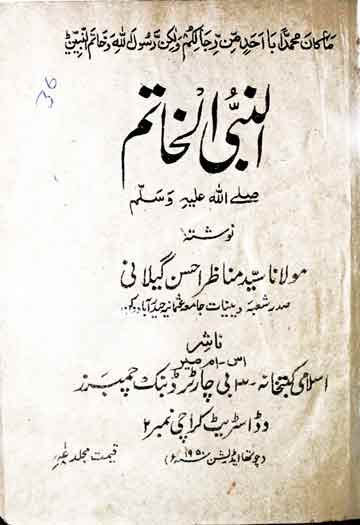 ما كان محمد ابا احد من رجالكم ولكن رسول الله وخاتم النبيين
36
النبی الخاتم
صلے اللہ علیہ وسلم
نوشتہ
مولانا سید مناظر احسن گیلانی
صدر شعبہ دینیات جامعہ عثمانیہ حیدرآباد دکن
ناشر
اس-ام-میر
اسلامی کتبخانہ-۳ بی چارٹرڈ بنک چمبرز
وڈ اسٹریٹ کراچی نمبر ۲
(چوتھا ایڈیشن ۱۹۵۰ء)
قیمت مجلد